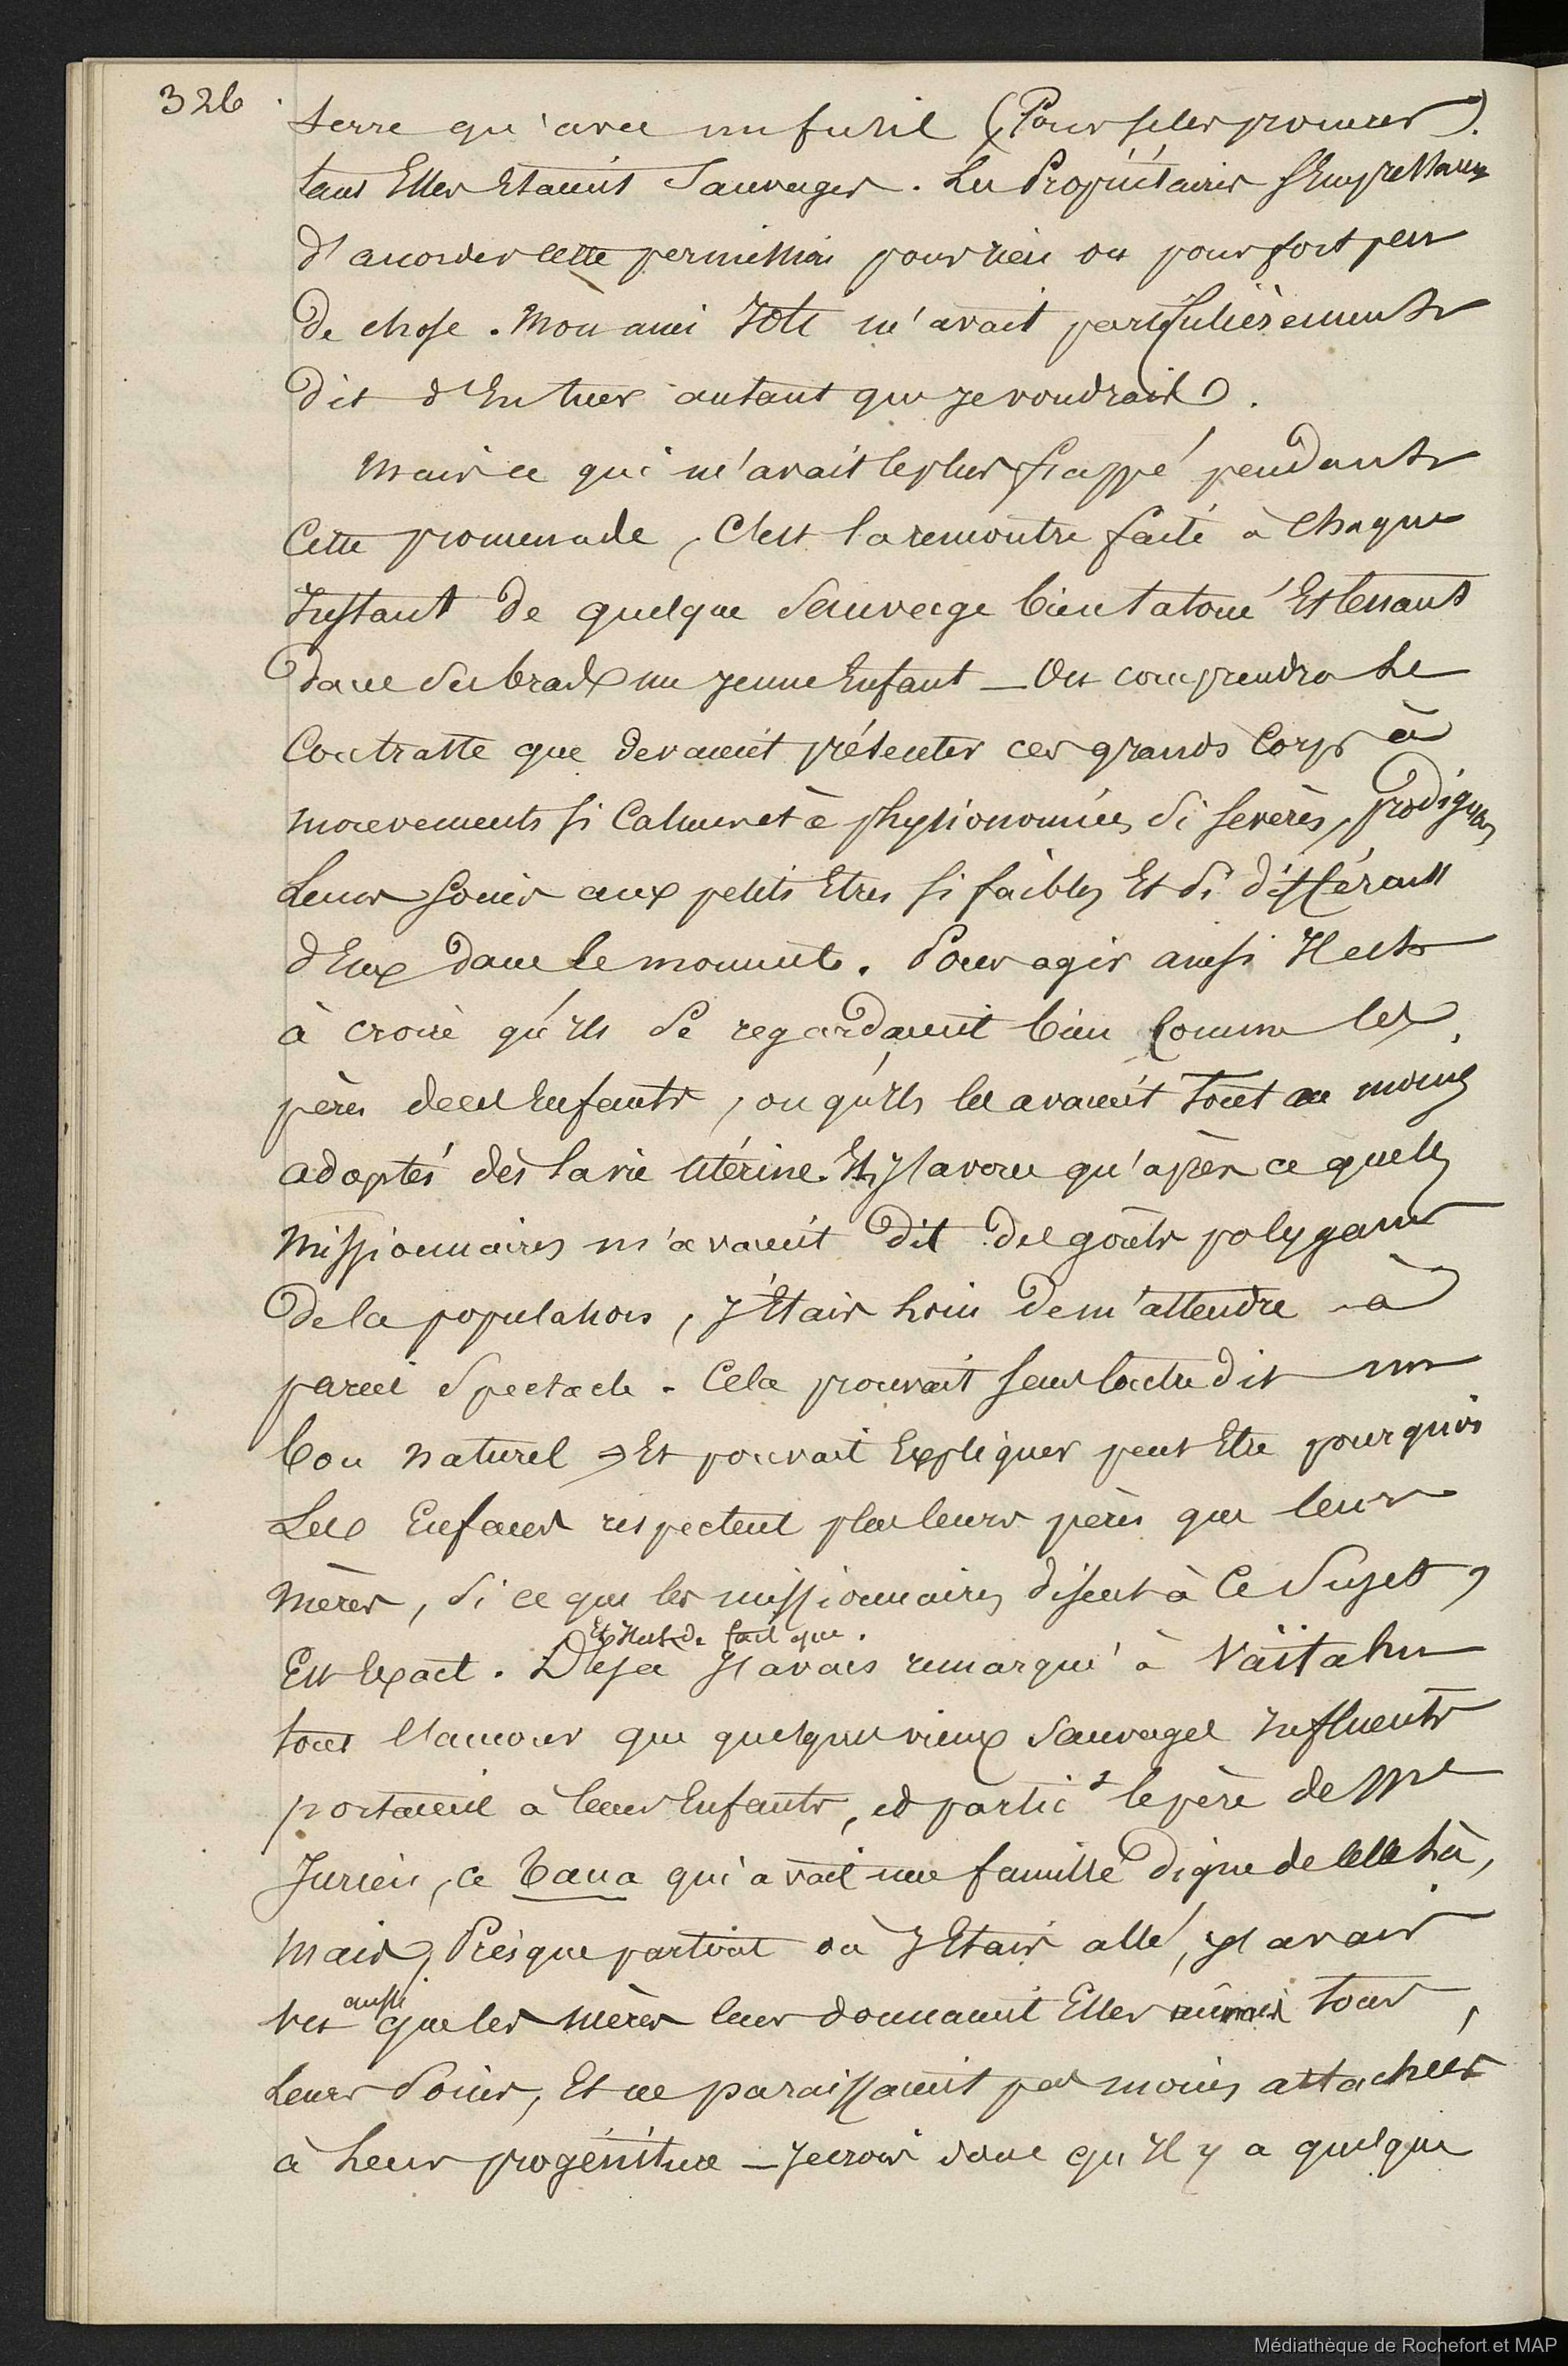 326
terre qu'avec un fusil (Pour se les procurer).
tant Elles Etaient Sauvages. Les Propriétaires s'Empressaient
d'accorder cette permission pour rien ou pour fort peu
de chose. Mon ami Ioté m'avait particulièrement
dit d'En tuer autant que je voudrais.
Mais ce qui m'avait le plus frappé pendant
Cette promenade, C'est la rencontre faite à Chaque
Instant de quelque Sauvage bien tatoué Et tenant
dans ses bras un jeune Enfant — On comprendra le
Contraste que devaient présenter ces grands Corps à
mouvements si Calmes et à physionomies si sevères, prodiguer
Leurs soins aux petits Etres si faibles Et si différents
d'Eux dans le moment. Pour agir ainsi Il est
à croire qu'Ils se regardaient bien Comme les
pères de ces Enfants, ou qu'Ils les avaient Tout au moins
adoptés dès la vie Utérine. Et J'avoue qu'après ce que les
Missionnaires m'avaient dit des goûts polygames
De la population, J'Etais loin de m'attendre à
pareil Spectacle. Cela prouvait sans contredit un
bon naturel Et pouvait Expliquer peut Etre pourquoi
Les Enfants respectent plus leurs pères que leurs
Mères, si ce que les missionnaires disent à Ce Sujet,
Est Exact. Déja J'avais remarqué à Vaïtahu
Et Il est de fait que.
tout l'amour que quelques vieux Sauvages Influents
portaient à leurs Enfants, et partic.t le père de Mme
Jurien, ce Taua qui avait une famille digne de celle là,
Mais, Presque partout où J'Etais allé, J'avais
vu aussi que les Mères leur donnaient Elles aussi tous
Leurs Soins, Et ne paraissaient pas moins attachées
à Leur progéniture — Je crois donc qu'Il y a quelque
Médiathèque de Rochefort et MAP